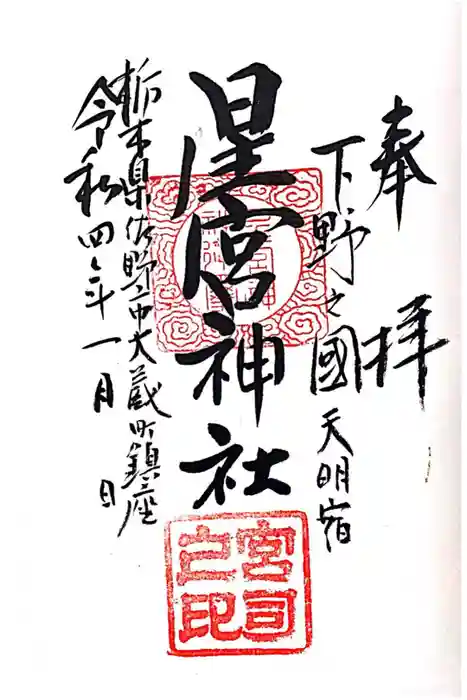 奉拝
下野之國天明宿
星宮神社
栃木県佐野市大蔵町鎮座
令和四年一月 日
宮司之印